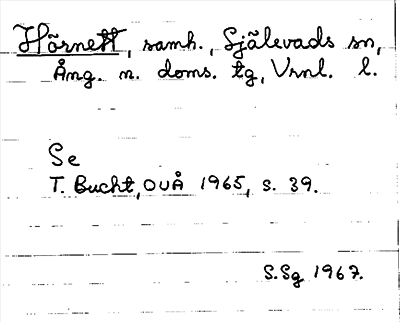 Hörnett, samh., Själevads sn,
Ång. n. doms. tg, Vrnl. l.
Se
T. Bucht, OUÅ 1965, s. 39.
S.Sg 1967.